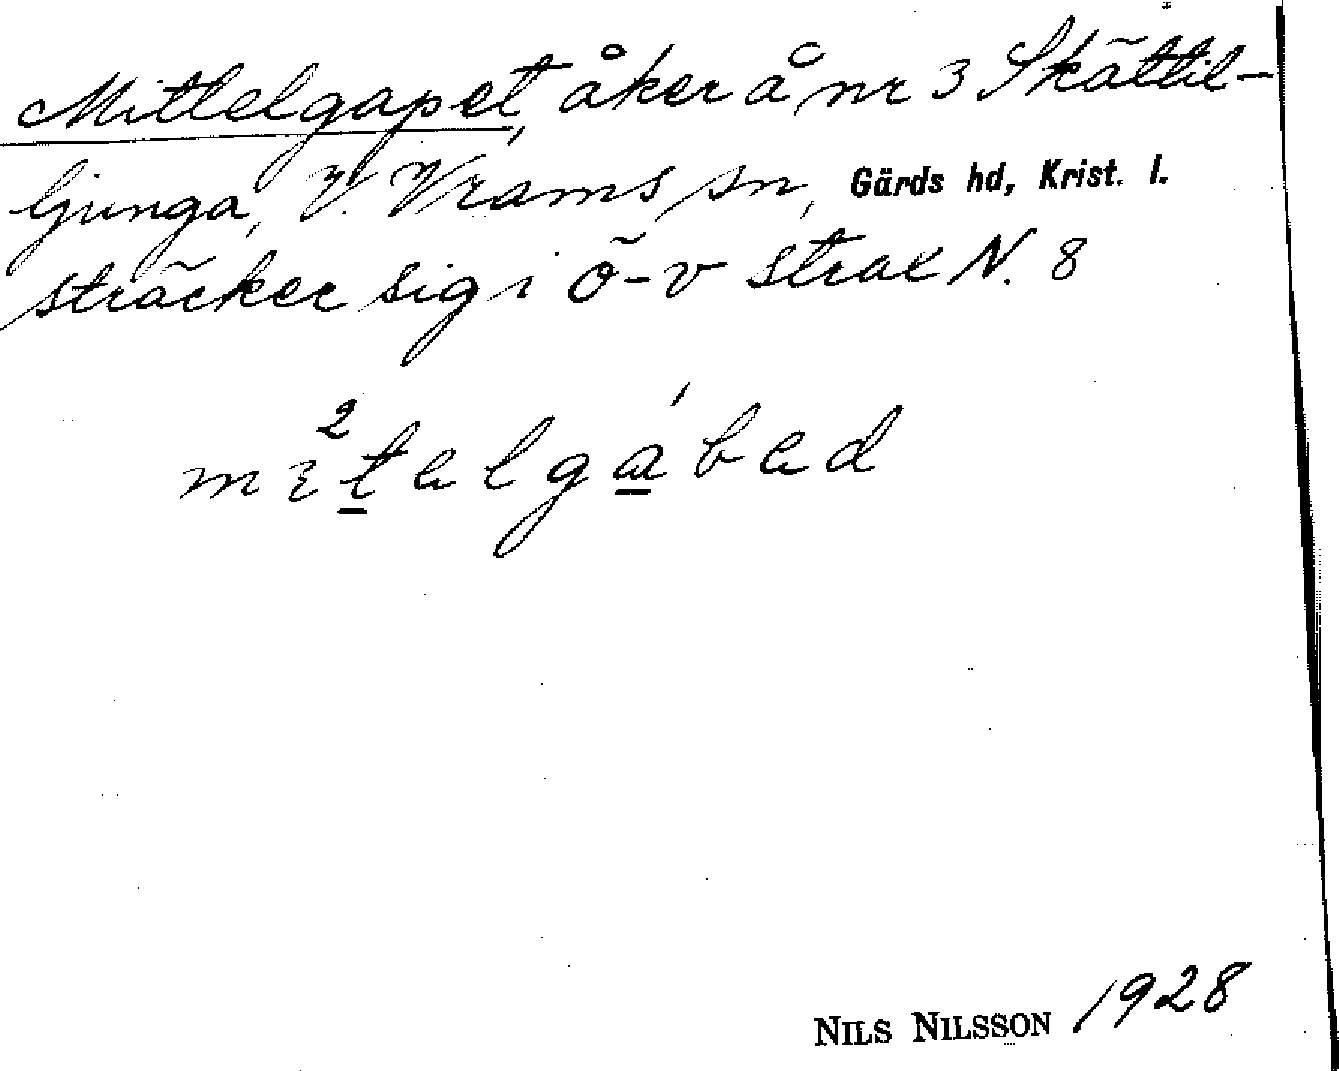 Mittelgapet, åker å nr 3 Skättil-
ljunga, V. Vrams sn, Gärds hd, Krist. l.
sträcker sig i ö-v strax N. 8
NILS NILSSON 1928